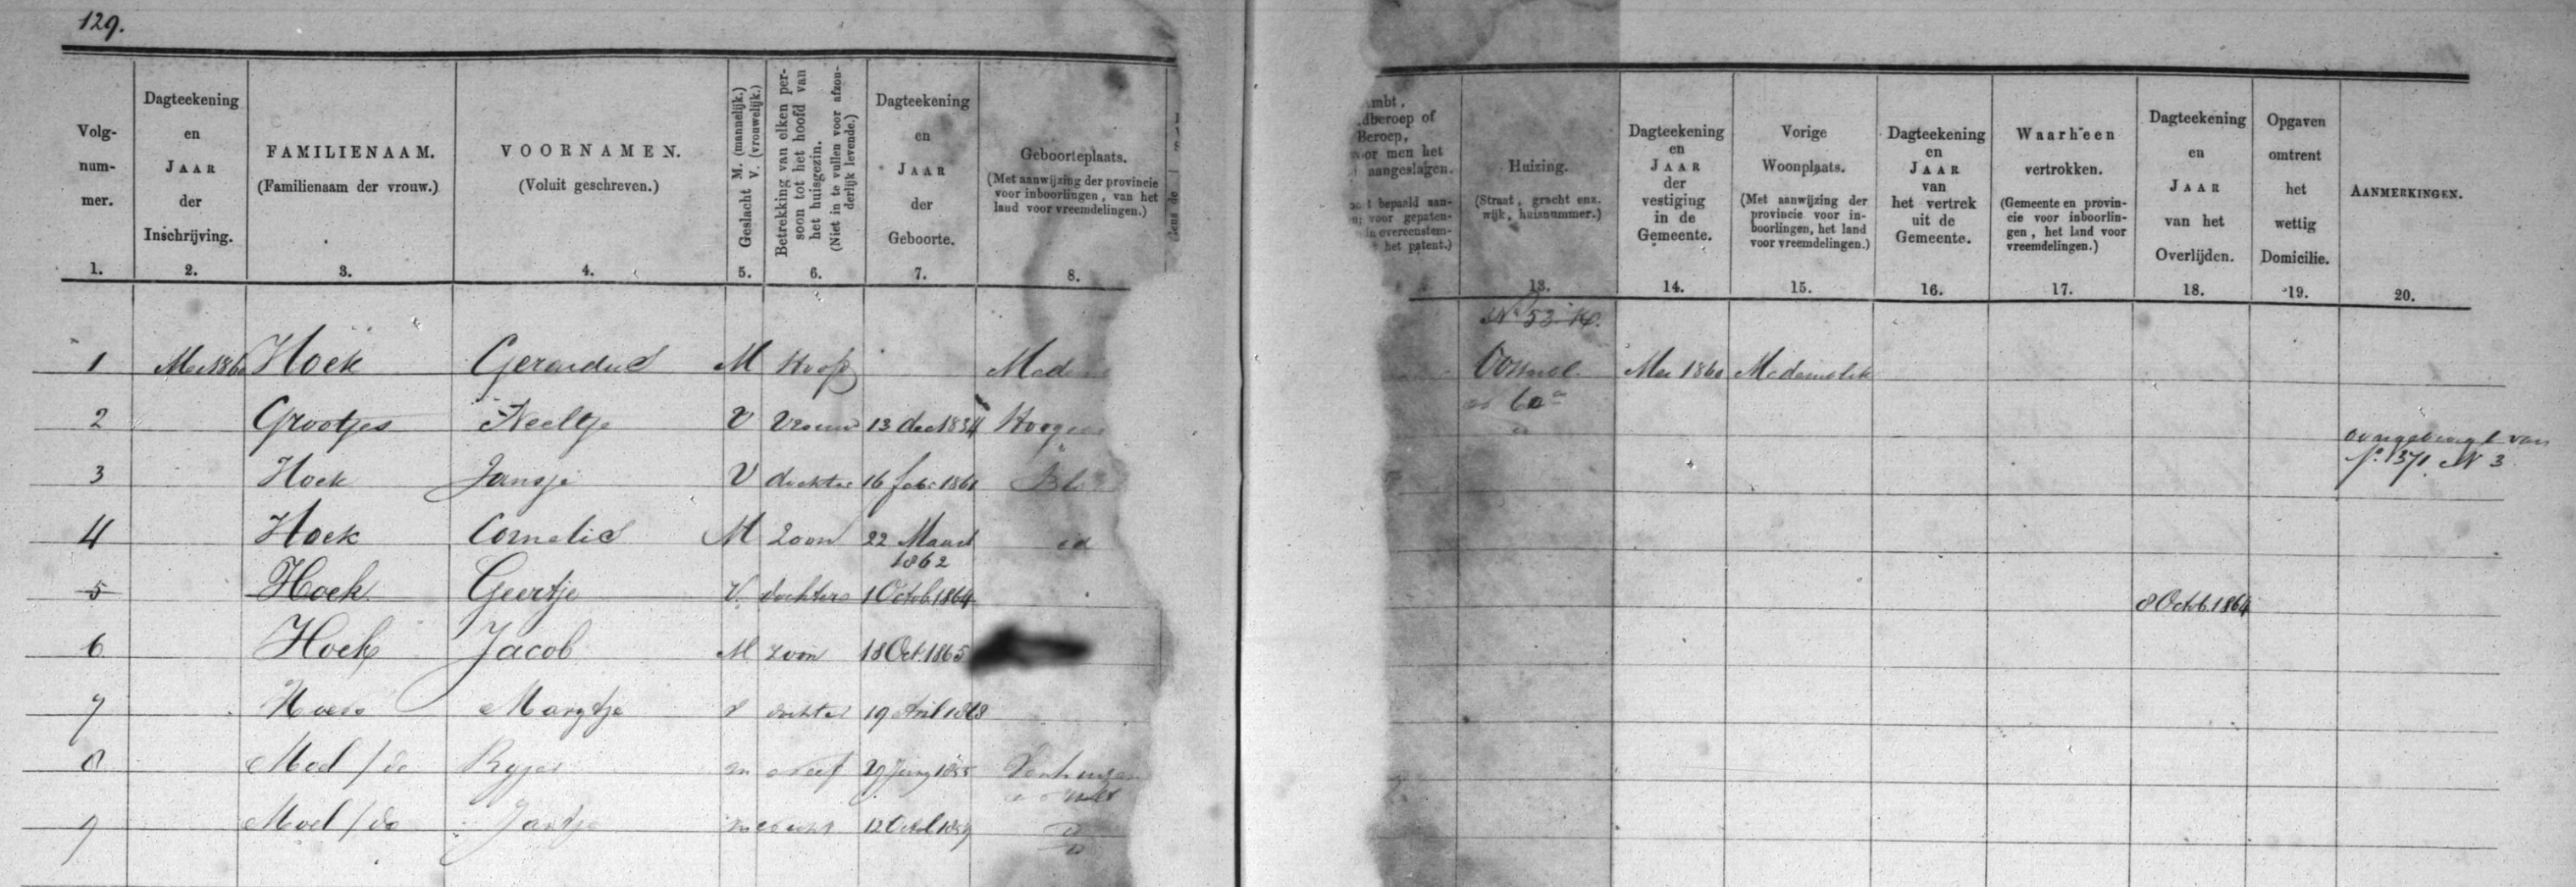 129.
Volg-
num-
mer.
1.
Dagteekening
en
JAAR
der
Inschrijving.
2.
FAMILIENAAM.
(Familienaam der vrouw.)
3.
VOORNAMEN.
(Voluit geschreven.)
4.
Geslacht M. (mannelijk.)
V. (vrouwelijk.)
5.
Betrekking van elken per-
soon tot het hoofd van
het huisgezin.
(Niet in te vullen voor afzon-
derlijk levende.)
6.
Dagteekening
en
JAAR
der
Geboorte.
7.
Geboorteplaats.
(Met aanwijzing der provincie
voor inboorlingen, van het
land voor vreemdelingen.)
8.
mbt,
dberoep of
Beroep,
voor men het
aangeslagen.
t bepaald aan-
n; voor gepaten-
in overeenstem-
het patent.)
Huizing.
(Straat, gracht enz.
wijk, huisnummer.)
13.
Dagteekening
en
JAAR
der
vestiging
in de
Gemeente.
14.
Vorige
Woonplaats.
(Met aanwijzing der
provincie voor in-
boorlingen, het land
voor vreemdelingen.)
15.
Dagteekening
en
JAAR
van
het vertrek
uit de
Gemeente.
16.
Waarheen
vertrokken.
(Gemeente en provin-
cie voor inboorlin-
gen, het land voor
vreemdelingen.)
17.
Dagteekening
en
JAAR
van het
Overlijden.
18.
Opgaven
omtrent
het
wettig
Domicilie.
19.
AANMERKINGEN.
20.
No 53
1 Mei 1860 Hoek Gerardus M Hoofd Mede Mei 1860 Medemblik
2 Grootjes Neeltje V Vrouw 13 dec 1834 Hoog
van
3 Hoek Jansje V dochter 16 febr 1861 3
4 Hoek Cornelis M Zoon 22 Maart id
1862
5 Hoek Geertje V. dochter 1 Octob 1864 8 Octb. 1864
6 Hoek Jacob M zoon 18 Oct. 1865
7 Hoek Margtje V dochter 19 April 1868
8 Mol / de 1855 Venhuizen
9 Mol / de Jantje 12 Octob